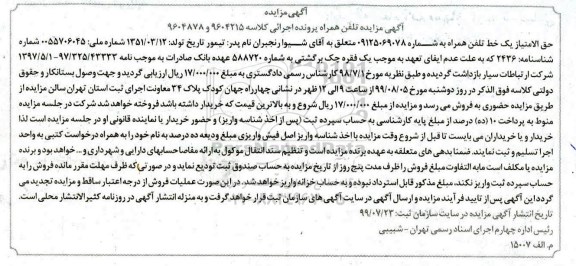 آگهی مزایده
آگهی مزایده تلفن همراه پرونده اجرائی کلاسه ۹۶۰۴۲۱۵ و ۹۶۰۴۸۷۸
حق الامتیاز یک خط تلفن همراه به شماره ۰۹۱۲۵۰۶۹۰۷۸ متعلق به آقای شیوا رنجبران نام پدر: تیمور تاریخ تولد: ۱۳۵۱/۰۳/۱۲ شماره ملی: ۰۰۵۵۷۰۶۰۴۵ شماره
شناسنامه: ۲۴۳۶ که به علت عدم ایفای تعهد به موجب یک فقره چک برگشتی به شماره ۵۸۸۷۲۰ عهده بانک صادرات به موجب نامه ۹۷/۳۲۵/۴۳۳۳۳-۱۳۹۷/۵/۱
شرکت ارتباطات سیار بازداشت گردیده و طبق نظریه مورخ ۹۸/۷/۱ کارشناس رسمی دادگستری به مبلغ ۱۷/۰۰۰/۰۰۰ ریال ارزیابی گردید و جهت وصول بستانکار و حقوق
دولتی کلاسه فوق الذکر در روز دوشنبه مورخ ۹۹/۰۸/۰۵ از ساعت ۹ الی ۱۲ ظهر در نشانی چهارراه جهان کودک پلاک ۲۴ معاونت اجرای ثبت استان تهران سالن مزایده از
طریق مزایده حضوری به فروش می رسد و مزایده از مبلغ ۱۷/۰۰۰/۰۰۰ ریال شروع و به بالاترین قیمت که خریدار داشته باشد فروخته خواهد شد شرکت در جلسه مزایده
منوط به پرداخت ۱۰ (ده) درصد از مبلغ پایه کارشناسی به حساب سپرده ثبت (پس از اخذ شناسه واریز) و حضور خریدار یا نماینده قانونی او در جلسه مزایده است لذا
خریدار و یا خریداران می بایست تا قبل از شروع وقت مزایده با اخذ شناسه واریز اصل فیش واریزی مبلغ ودیعه ده درصد به نام خود را به همراه درخواست کتبی به واحد
اجرا تسلیم و ثبت نمایند. ضمنا بدهی های متعلقه به عهده برنده مزایده است و تنظیم سند انتقال موکول به ارائه مفاصاحسابهای دارایی و شهرداری و... خواهد بود و برنده
مزایده یا مکلف است مابه التفاوت مبلغ فروش را ظرف مدت پنج روز از تاریخ مزایده به حساب صندوق ثبت تودیع نماید و در صورتی که ظرف مهلت مقرر مانده فروش را به
حساب سپرده ثبت واریز نکند، مبلغ مذکور قابل استرداد نبوده و به حساب خزانه واریز خواهد شد. در این صورت عملیات فروش از درجه اعتبار ساقط و مزایده تجدید می
گردد این آگهی پس از تایید فرآیند مزایده و ارسال آگهی در سایت آگهی های سازمان ثبت قرار خواهد گرفت و به منزله انتشار آگهی در روزنامه کثیرالانتشار محلی است.
تاریخ انتشار آگهی مزایده در سایت سازمان ثبت: ۹۹/۰۷/۲۳
رئیس اداره چهارم اجرای اسناد رسمی تهران - شبیبی
م. الف ۱۵۰۰۷